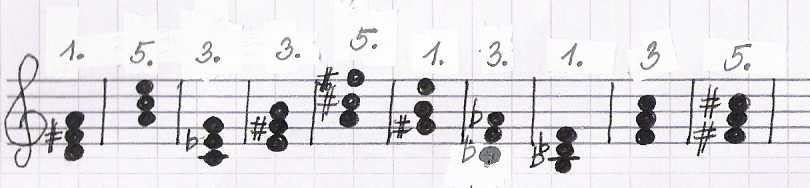 1. 5. 3. 3. 5. 1. 3. 1. 3 5.